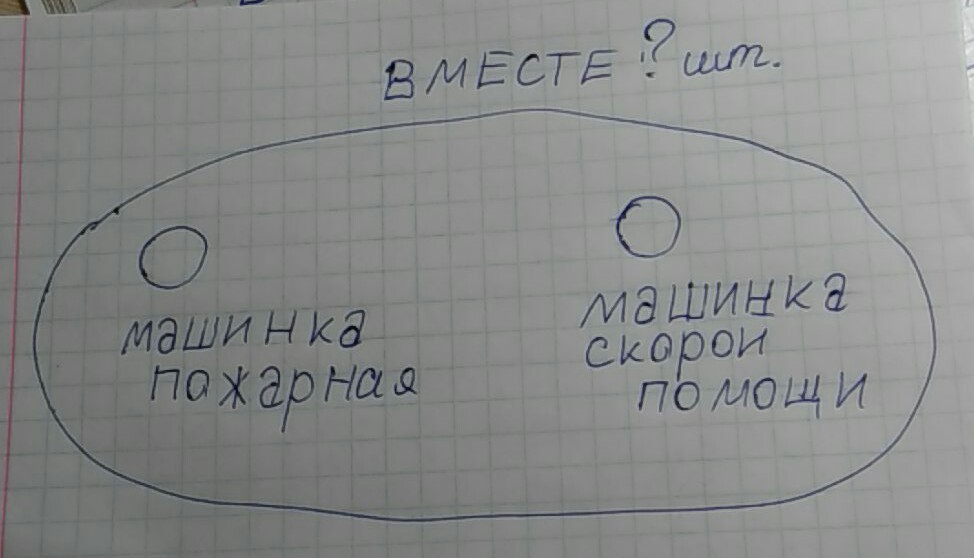 ВМЕСТЕ ? шт.
машинка
пожарная
машинка
скорои
помощи